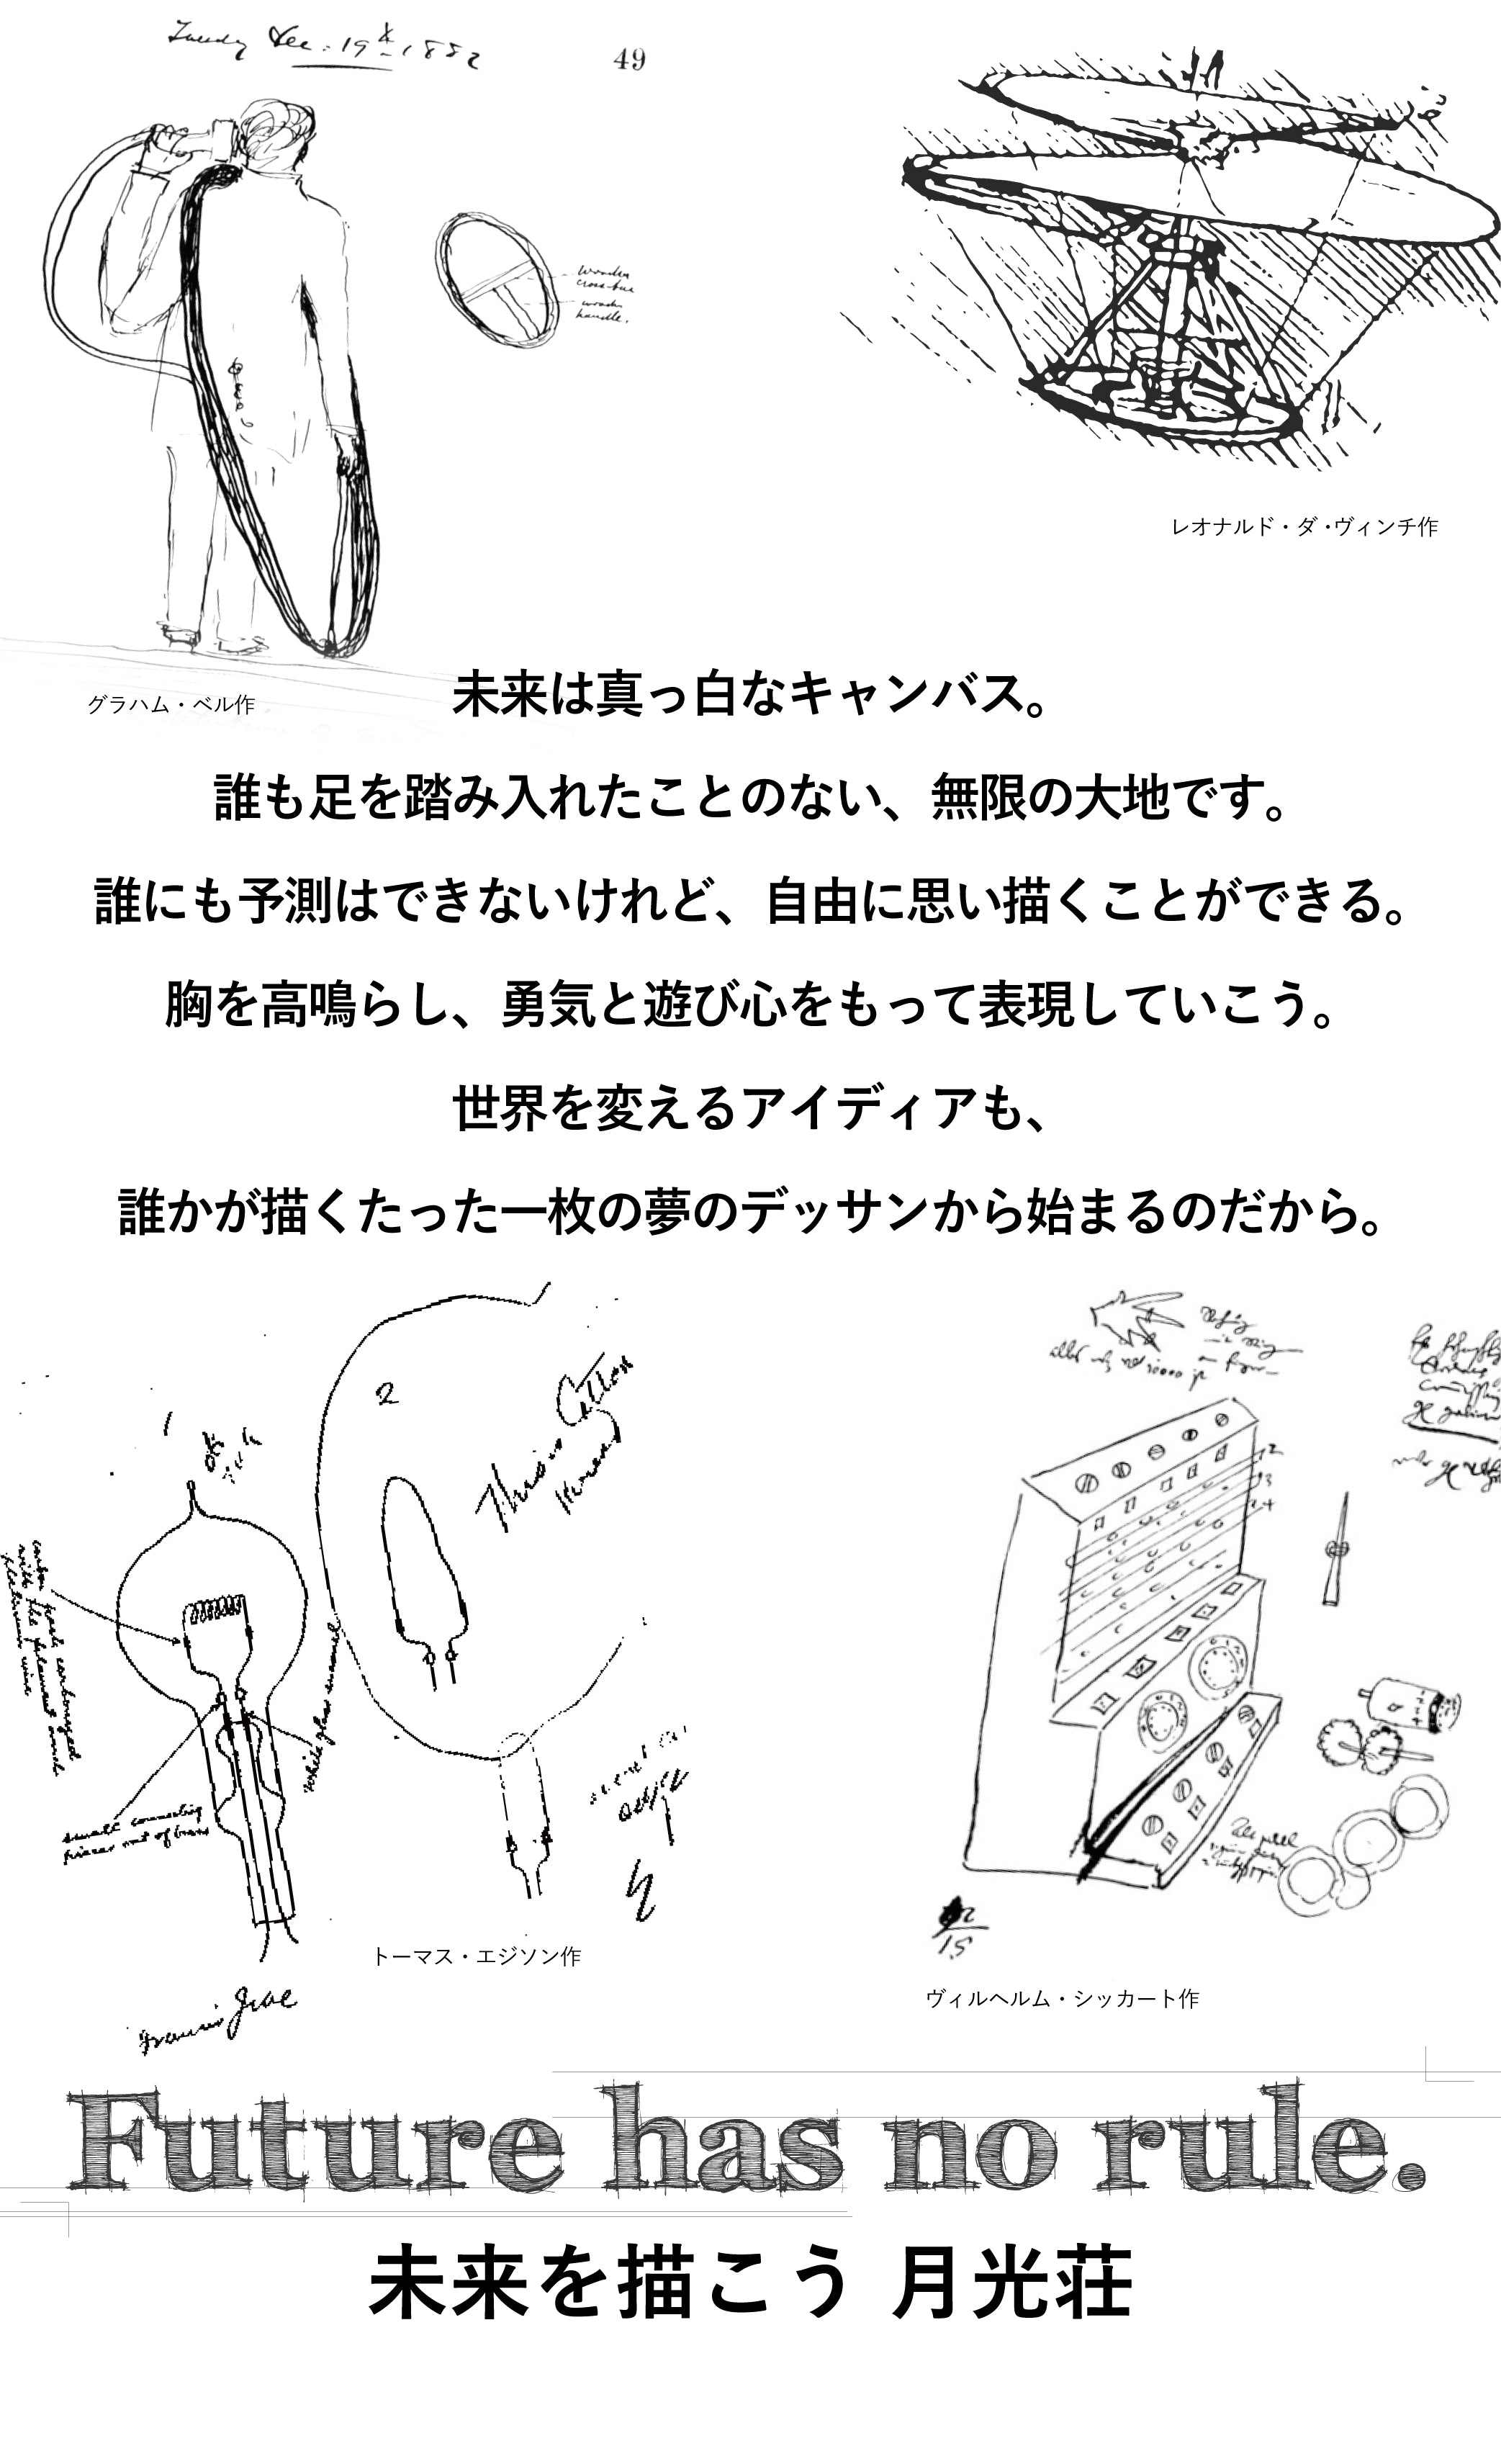 Tuesday Dec. 19th 1882
49
wooden
cross-bar
wooden
handle.
レオナルド・ダ・ヴィンチ作
グラハム・ベル作
未来は真っ白なキャンバス。
誰も足を踏み入れたことのない、無限の大地です。
誰にも予測はできないけれど、自由に思い描くことができる。
胸を高鳴らし、勇気と遊び心をもって表現していこう。
世界を変えるアイディアも、
誰かが描くたった一枚の夢のデッサンから始まるのだから。
2
This is Cotton
thread
white glass enamel
small connecting
pieces out of brass
トーマス・エジソン作
12
13
14
ヴィルヘルム・シッカート作
Future has no rule.
未来を描こう 月光荘